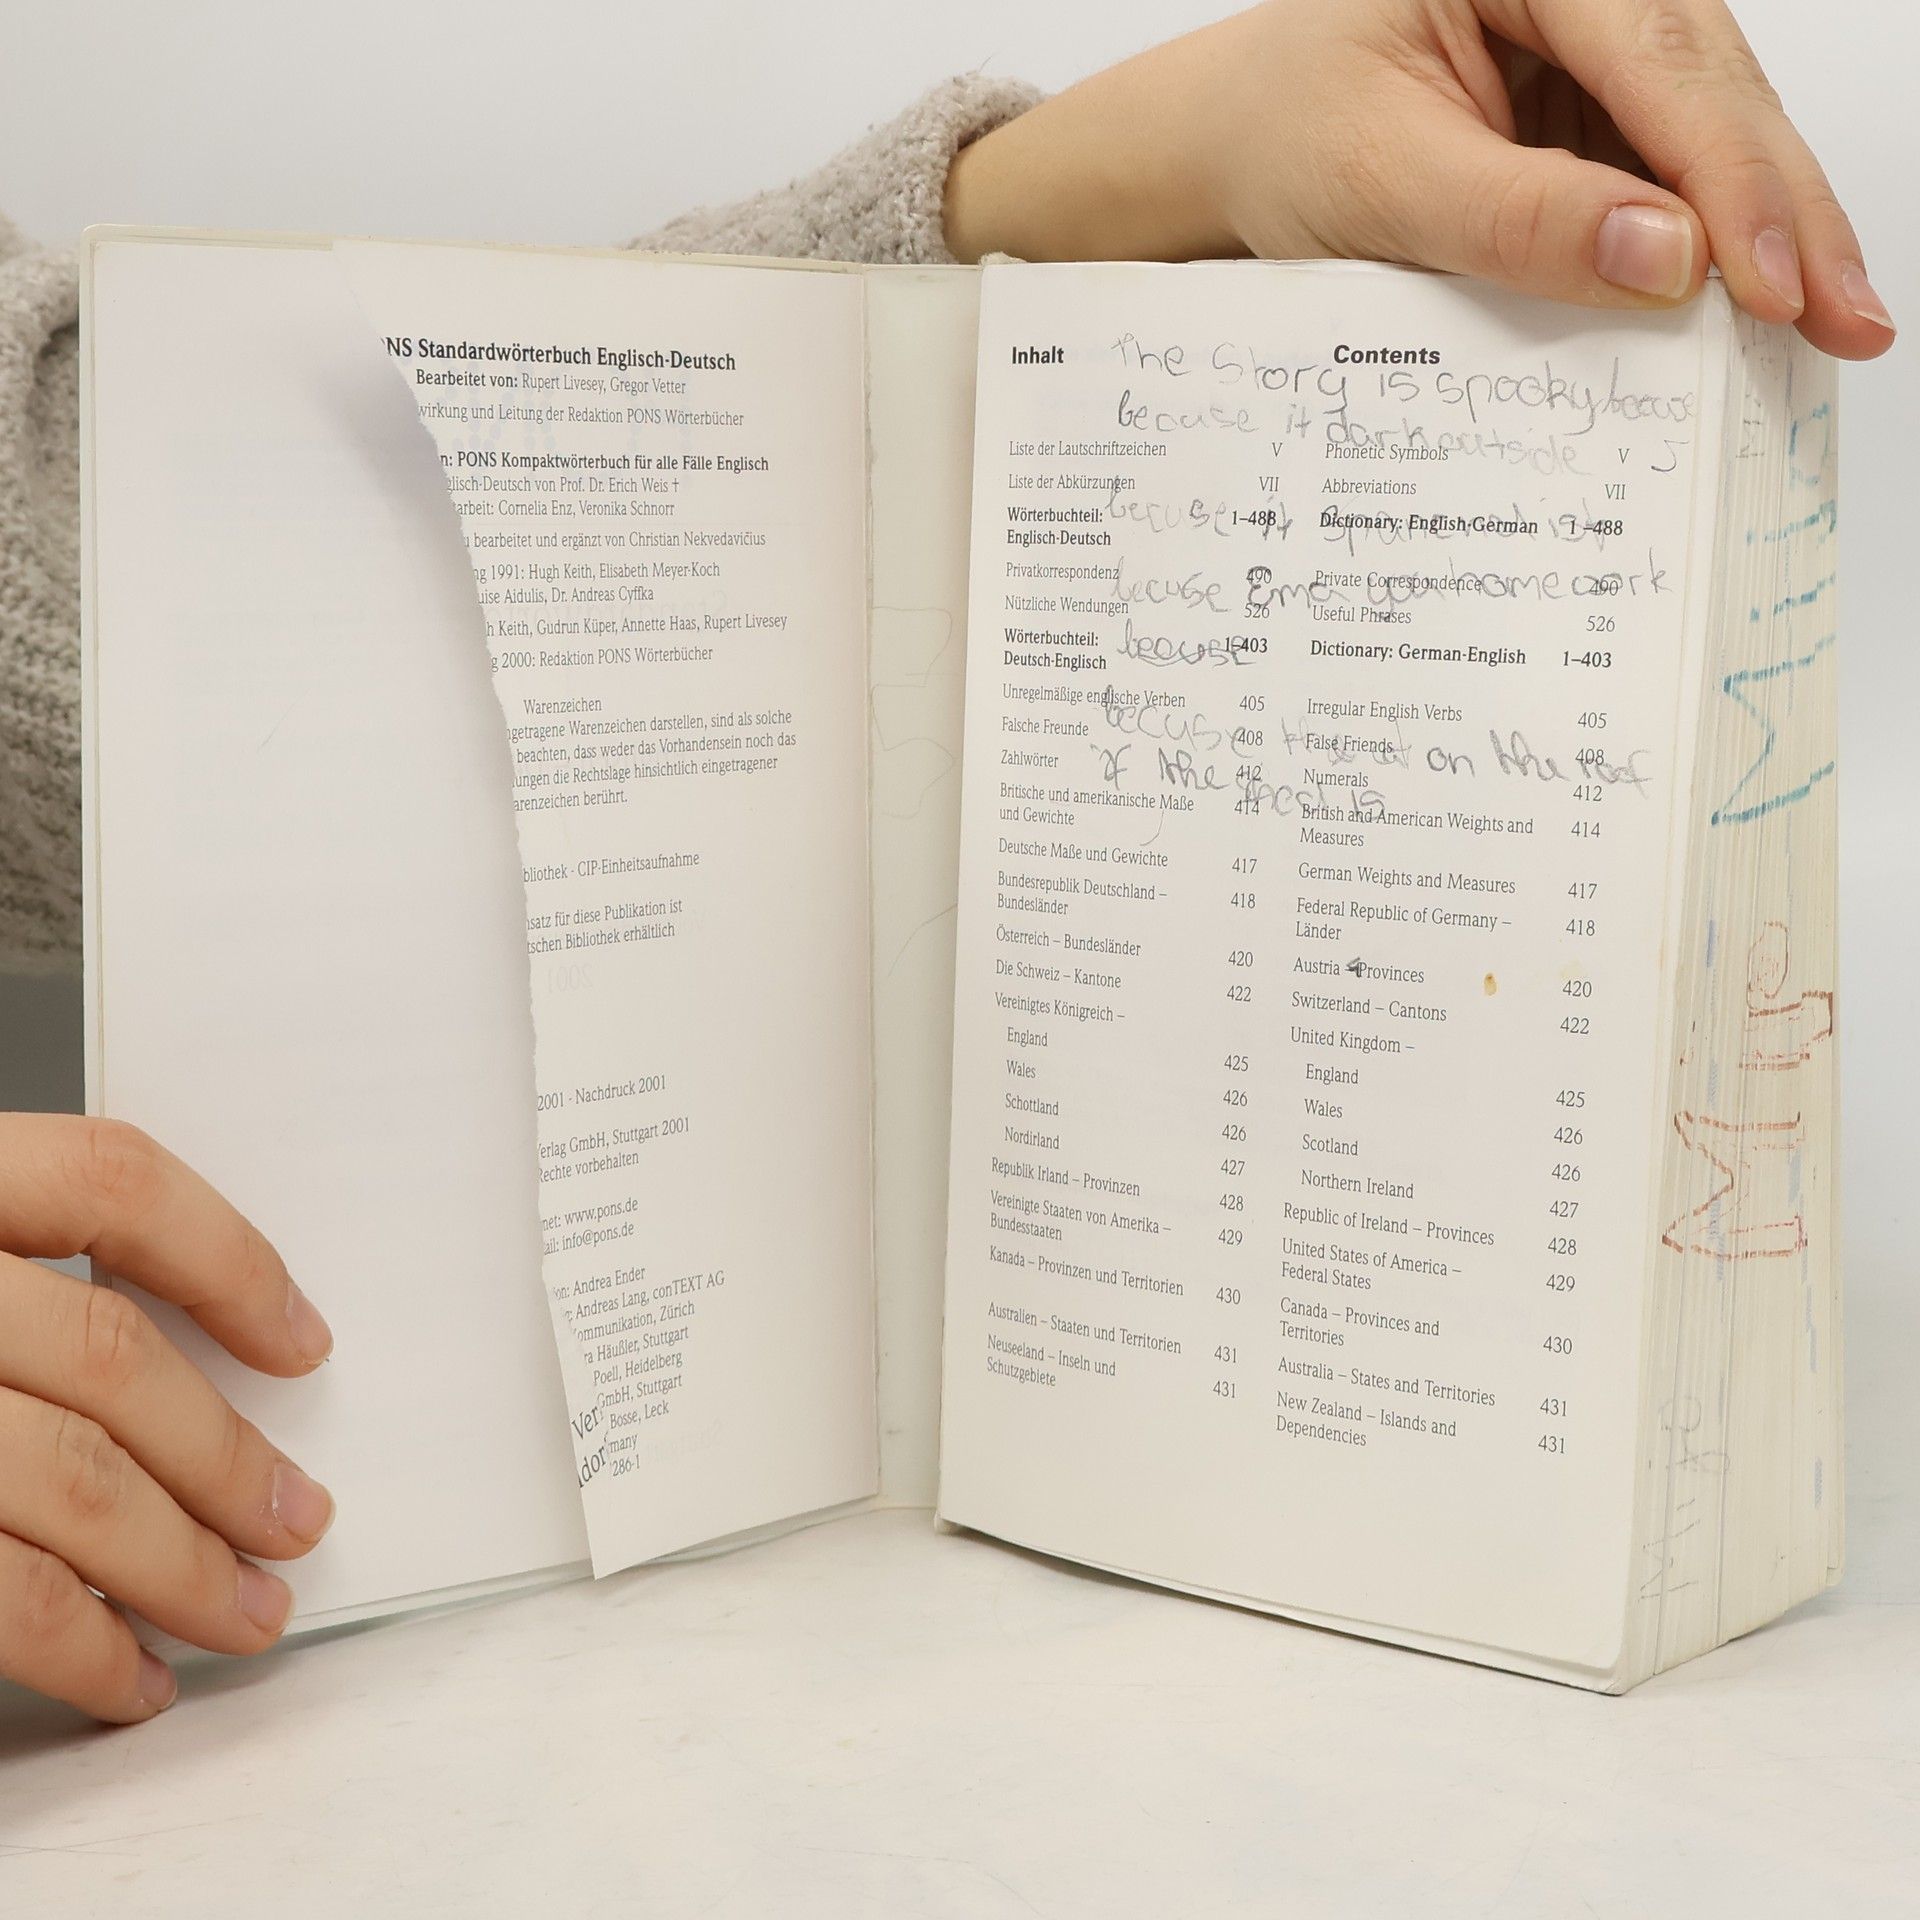 NS Standardwörterbuch Englisch-Deutsch
Bearbeitet von: Rupert Livesey, Gregor Vetter
wirkung und Leitung der Redaktion PONS Wörterbücher
n: PONS Kompaktwörterbuch für alle Fälle Englisch
glisch-Deutsch von Prof. Dr. Erich Weis †
arbeit: Cornelia Enz, Veronika Schnorr
u bearbeitet und ergänzt von Christian Nekvedavičius
ng 1991: Hugh Keith, Elisabeth Meyer-Koch
uise Aidulis, Dr. Andreas Cyffka
h Keith, Gudrun Küper, Annette Haas, Rupert Livesey
g 2000: Redaktion PONS Wörterbücher
Warenzeichen
ngetragene Warenzeichen darstellen, sind als solche
beachten, dass weder das Vorhandensein noch das
ungen die Rechtslage hinsichtlich eingetragener
arenzeichen berührt.
bliothek - CIP-Einheitsaufnahme
nsatz für diese Publikation ist
tschen Bibliothek erhältlich
2001 - Nachdruck 2001
Verlag GmbH, Stuttgart 2001
Rechte vorbehalten
net: www.pons.de
ail: info@pons.de
on: Andrea Ender
: Andreas Lang, conTEXT AG
ommunikation, Zürich
ra Häußler, Stuttgart
Poell, Heidelberg
GmbH, Stuttgart
Bosse, Leck
many
286-1
Ver
dor
Inhalt
Liste der Lautschriftzeichen V
Liste der Abkürzungen VII
Wörterbuchteil: 1–488
Englisch-Deutsch
Privatkorrespondenz 490
Nützliche Wendungen 526
Wörterbuchteil: 1–403
Deutsch-Englisch
Unregelmäßige englische Verben 405
Falsche Freunde 408
Zahlwörter 412
Britische und amerikanische Maße 414
und Gewichte
Deutsche Maße und Gewichte 417
Bundesrepublik Deutschland – 418
Bundesländer
Österreich – Bundesländer 420
Die Schweiz – Kantone 422
Vereinigtes Königreich –
England 425
Wales 426
Schottland 426
Nordirland 427
Republik Irland – Provinzen 428
Vereinigte Staaten von Amerika – 429
Bundesstaaten
Kanada – Provinzen und Territorien 430
Australien – Staaten und Territorien 431
Neuseeland – Inseln und 431
Schutzgebiete
Contents
Phonetic Symbols V
Abbreviations VII
Dictionary: English-German 1–488
Private Correspondence 490
Useful Phrases 526
Dictionary: German-English 1–403
Irregular English Verbs 405
False Friends 408
Numerals 412
British and American Weights and 414
Measures
German Weights and Measures 417
Federal Republic of Germany – 418
Länder
Austria – Provinces 420
Switzerland – Cantons 422
United Kingdom –
England 425
Wales 426
Scotland 426
Northern Ireland 427
Republic of Ireland – Provinces 428
United States of America – 429
Federal States
Canada – Provinces and 430
Territories
Australia – States and Territories 431
New Zealand – Islands and 431
Dependencies
The Story is spooky becuse
becuse it dark outside
becuse it
becuse homework
becuse
becuse on the roof
if the is